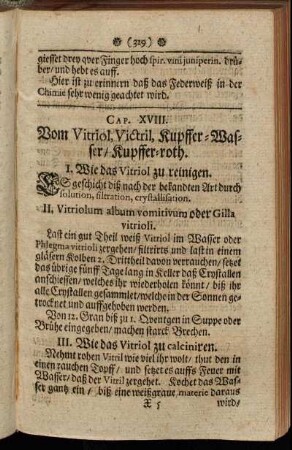 (319)
giesset drey qver Finger hoch spir. vini juniperin. drü-
ber/ und hebt es auff.
Hier ist zu erinnern daß das Federweiß in der
Chimie sehr wenig geachtet wird.
CAP. XVIII.
Vom Vitriol, Victril, Kupffer-Was-
ser/ Kupffer-roth.
I. Wie das Vitriol zu reinigen.
ES geschicht diß nach der bekandten Art durch
solution, filtration, crystallisation.
II. Vitriolum album vomitivum oder Gilla
vitrioli.
Last ein gut Theil weiß Vitriol im Wasser oder
Phlegma vitrioli zergehen/ filtrirts und last in einem
gläsern Kolben 2. Drittheil davon verrauchen/ setzet
das übrige fünff Tage lang in Keller daß Crystallen
anschiessen/ welches ihr wiederholen könnt/ biß ihr
alle Crystallen gesammlet/ welche in der Sonnen ge-
trocknet und auffgehoben werden.
Von 12. Gran biß zu 1. Qventgen in Suppe oder
Brühe eingegeben/ machen starck Brechen.
III. Wie das Vitriol zu calciniren.
Nehmt rohen Vitril wie viel ihr wolt/ thut den in
einen rauchen Topff/ und setzet es auffs Feuer mit
Wasser/ daß der Vitril zergehet. Kochet das Was-
ser gantz ein/ biß eine weißgraue materie daraus
X 5
wird/